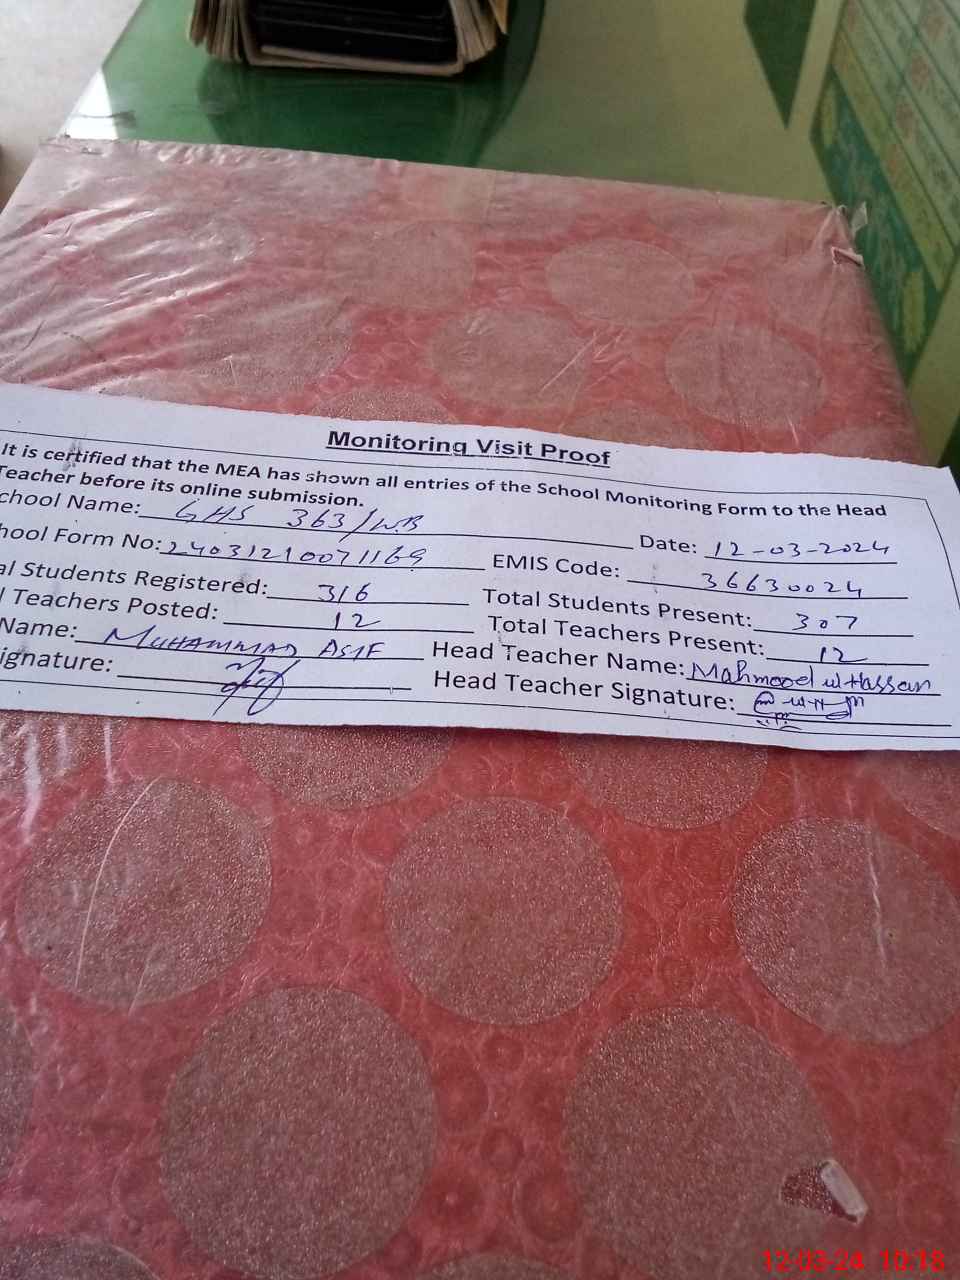 Monitoring Visit Proof
It is certified that the MEA has shown all entries of the School Monitoring Form to the Head
Teacher before its online submission.
chool Name: GHS 363/W.B Date: 12-03-2024
hool Form No: 24031210071169 EMIS Code: 36630024
al Students Registered: 316 Total Students Present: 307
l Teachers Posted: 12 Total Teachers Present: 12
Name: MUHAMMAD ASIF Head Teacher Name: Mahmood ul Hassan
ignature: Head Teacher Signature:
12-03-24 10:18